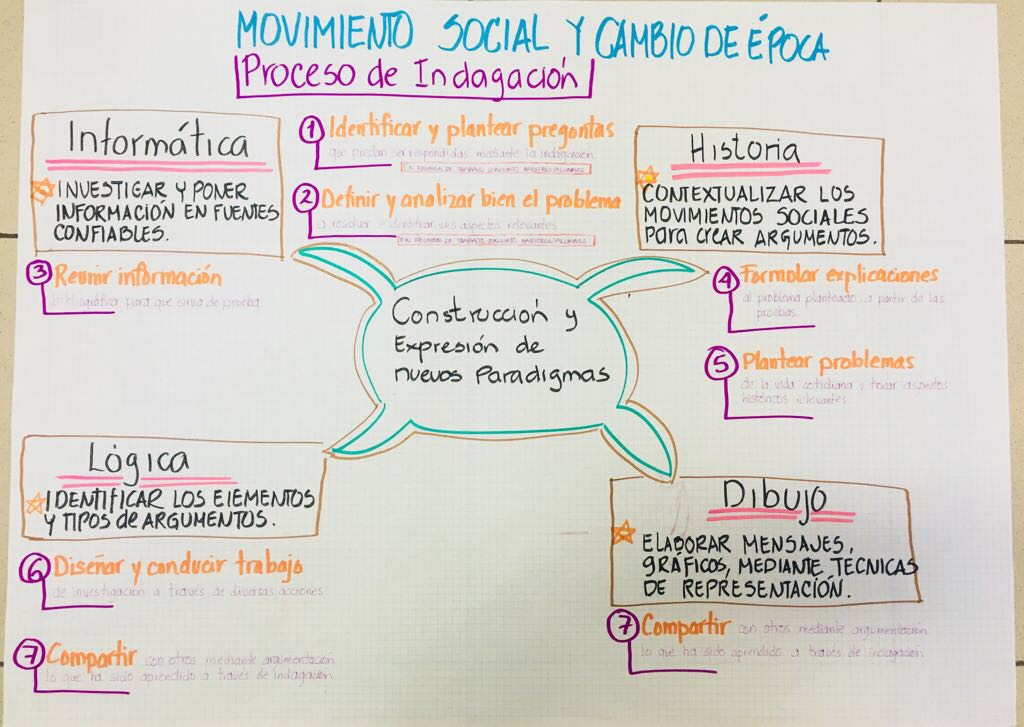 MOVIMIENTO SOCIAL Y CAMBIO DE ÉPOCA
Proceso de Indagación
Informática
INVESTIGAR Y PONER
INFORMACIÓN EN FUENTES
CONFIABLES.
1 Identificar y plantear preguntas
que puedan ser respondidas mediante la indagación
EN REUNIÓN DE TRABAJO CONJUNTO MAESTROS/ALUMNOS
2 Definir y analizar bien el problema
a resolver e identificar sus aspectos relevantes
EN REUNIÓN DE TRABAJO CONJUNTO MAESTROS/ALUMNOS
Historia
CONTEXTUALIZAR LOS
MOVIMIENTOS SOCIALES
Para crear ARGUMENTOS.
3 Reunir información
bibliográfica para que sirva de prueba
4 Formular explicaciones
al problema planteado a partir de las
pruebas
5 Plantear problemas
de la vida cotidiana y tocar aspectos
históricos relevantes
Construcción y
Expresión de
nuevos Paradigmas
Lógica
IDENTIFICAR LOS ElEMENTOS
y TIPOS de ARGUMENTOS.
6 Diseñar y conducir trabajo
de investigación a través de diversas acciones
7 Compartir con otros mediante argumentación
lo que ha sido aprendido a través de indagación
Dibujo
ELABORAR MENSAJES,
GRÁFICOS, MEDIANTE TECNICAS
DE REPRESENTACIÓN.
7 Compartir con otros mediante argumentación
lo que ha sido aprendido a través de indagación